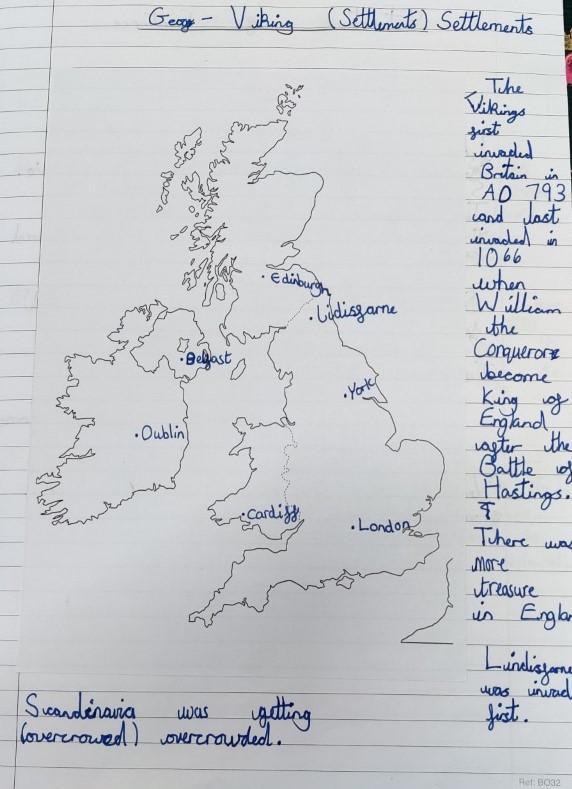 Geog - Viking (Settlements) Settlements
The
Vikings
first
invaded
Britain in
AD 793
and last
invaded in
1066
when
William
the
Conqueror
become
King of
England
after the
Battle of
Hastings.
There was
more
treasure
in Englan
Lindisfarne
was invad
first.
Edinburgh
Lidisfarne
Belfast
York
Dublin
Cardiff
London
Scandinavia was getting
(overcrowed) overcrowded.
Ref: BO32